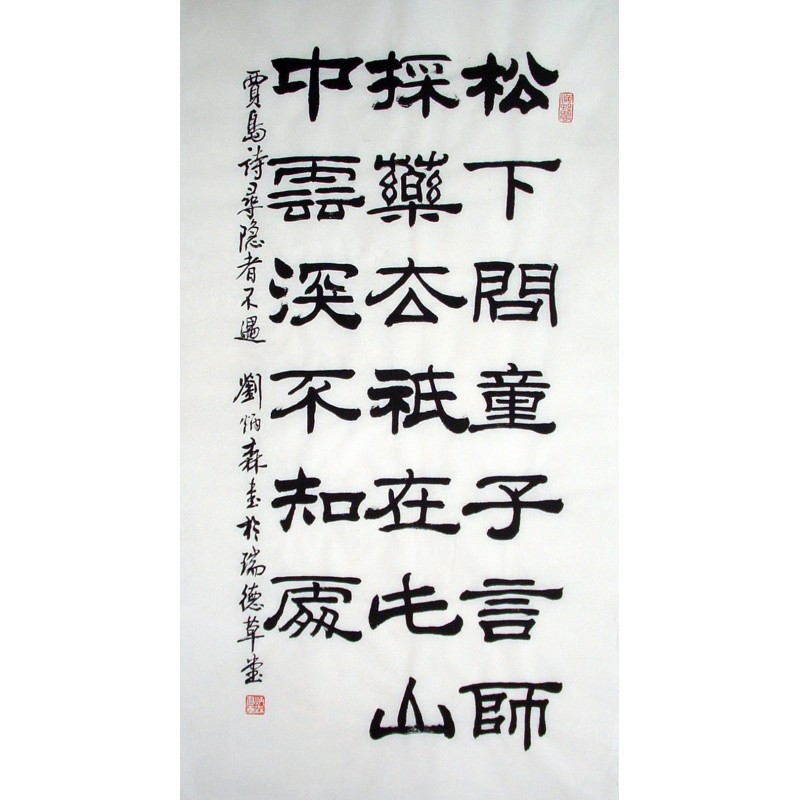 松下問童子言師
採藥去祇在此山
中雲深不知處
賈島詩尋隐者不遇 劉炳森书於瑞德草堂